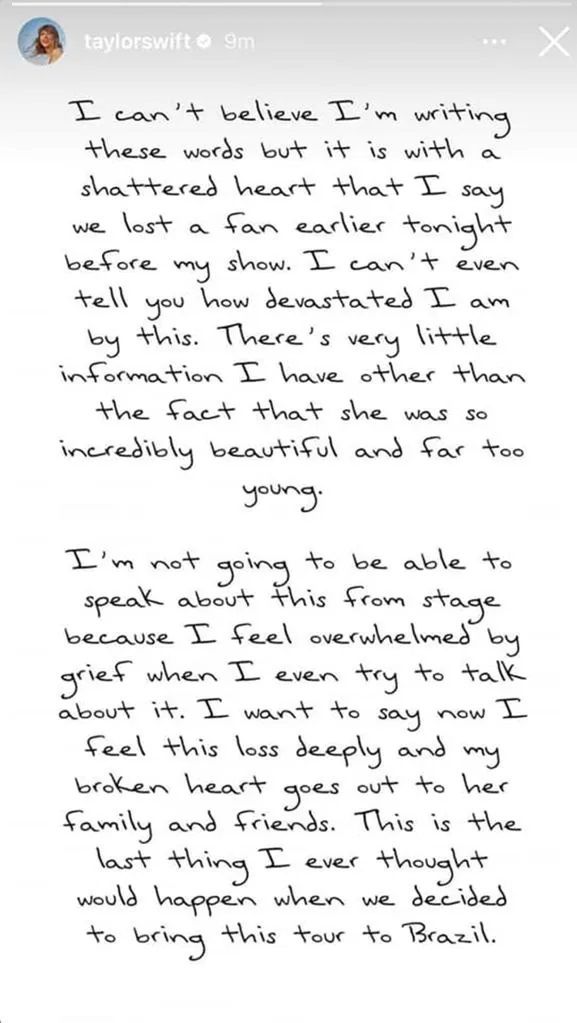 taylorswift 9m
I can't believe I'm writing
these words but it is with a
shattered heart that I say
we lost a fan earlier tonight
before my show. I can't even
tell you how devastated I am
by this. There's very little
information I have other than
the fact that she was so
incredibly beautiful and far too
young.
I'm not going to be able to
speak about this from stage
because I feel overwhelmed by
grief when I even try to talk
about it. I want to say now I
feel this loss deeply and my
broken heart goes out to her
family and friends. This is the
last thing I ever thought
would happen when we decided
to bring this tour to Brazil.